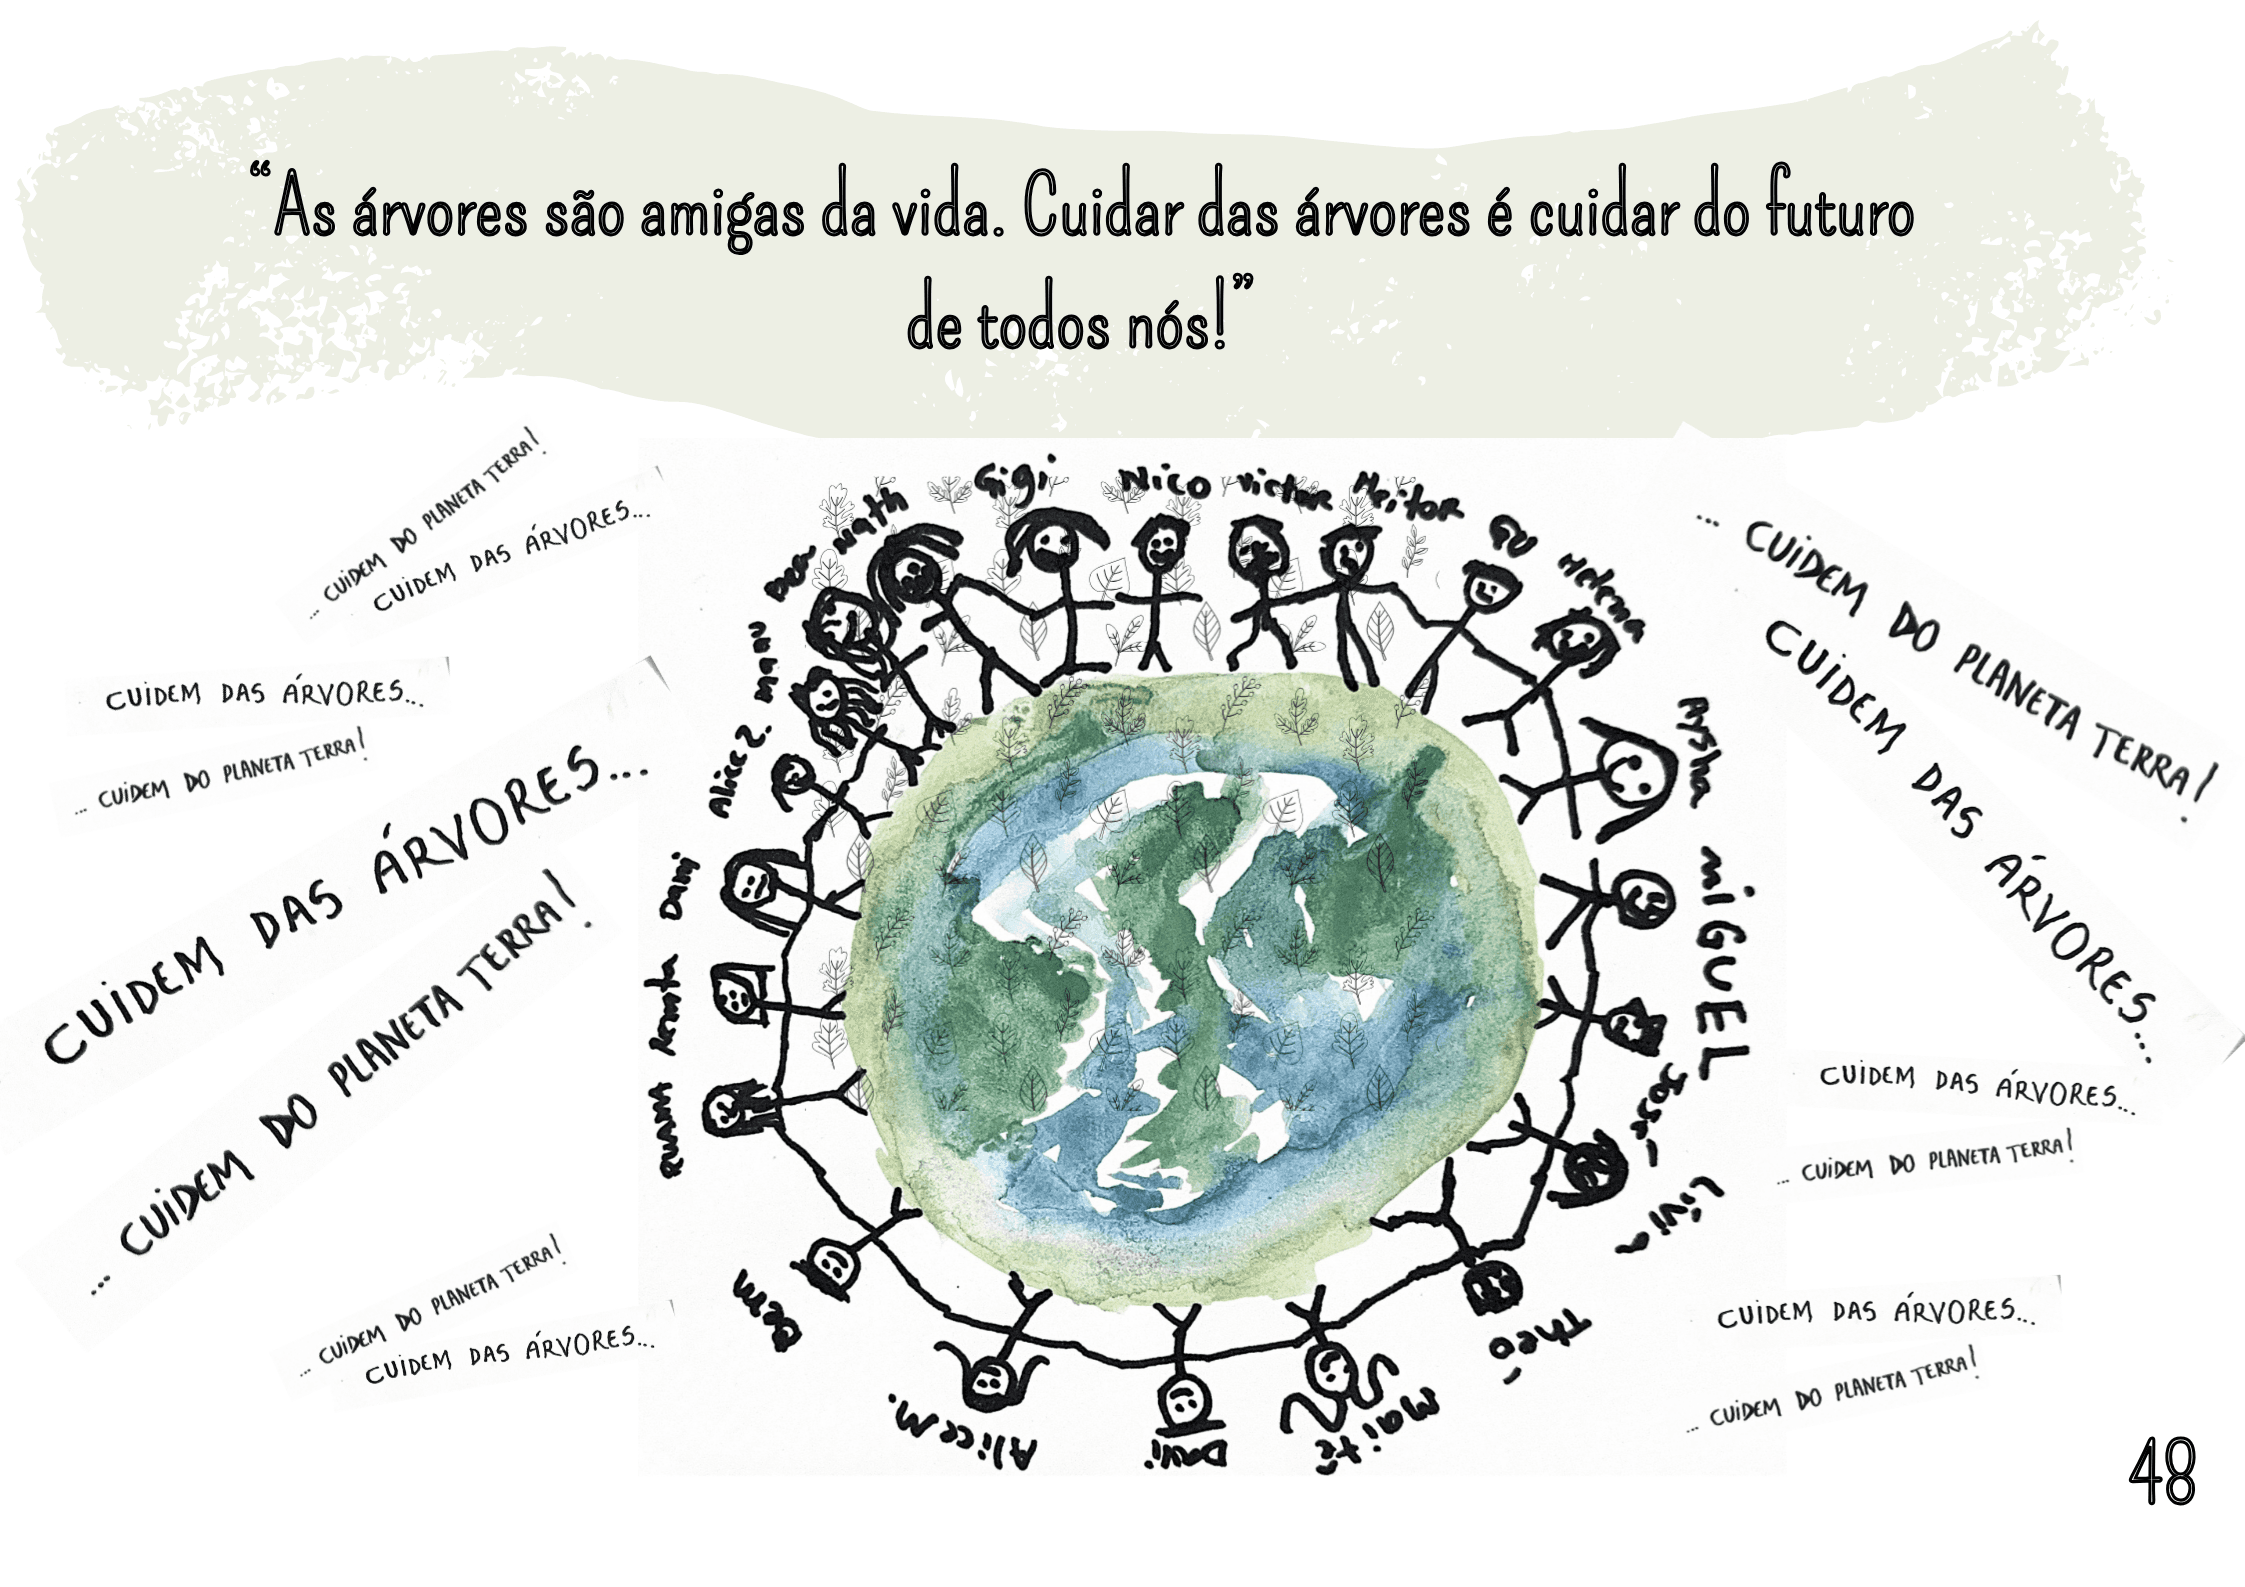 “As árvores são amigas da vida. Cuidar das árvores é cuidar do futuro
de todos nós!”
... CUIDEM DO PLANETA TERRA!
CUIDEM DAS ÁRVORES...
CUIDEM DAS ÁRVORES...
... CUIDEM DO PLANETA TERRA!
CUIDEM DAS ÁRVORES...
... CUIDEM DO PLANETA TERRA!
... CUIDEM DO PLANETA TERRA!
CUIDEM DAS ÁRVORES...
Gigi
Nico
Victor
Heitor
GU
Helena
Aysha
MiGUEL
Livia
Theo
Maitê
Davi
Alice M.
Bem
Ruant
Renata
Dani
Alice Z.
Manu
Nath
... CUIDEM DO PLANETA TERRA!
CUIDEM DAS ÁRVORES...
CUIDEM DAS ÁRVORES...
... CUIDEM DO PLANETA TERRA!
CUIDEM DAS ÁRVORES...
... CUIDEM DO PLANETA TERRA!
48